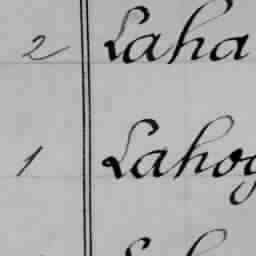 2 Laha
1 Lahog